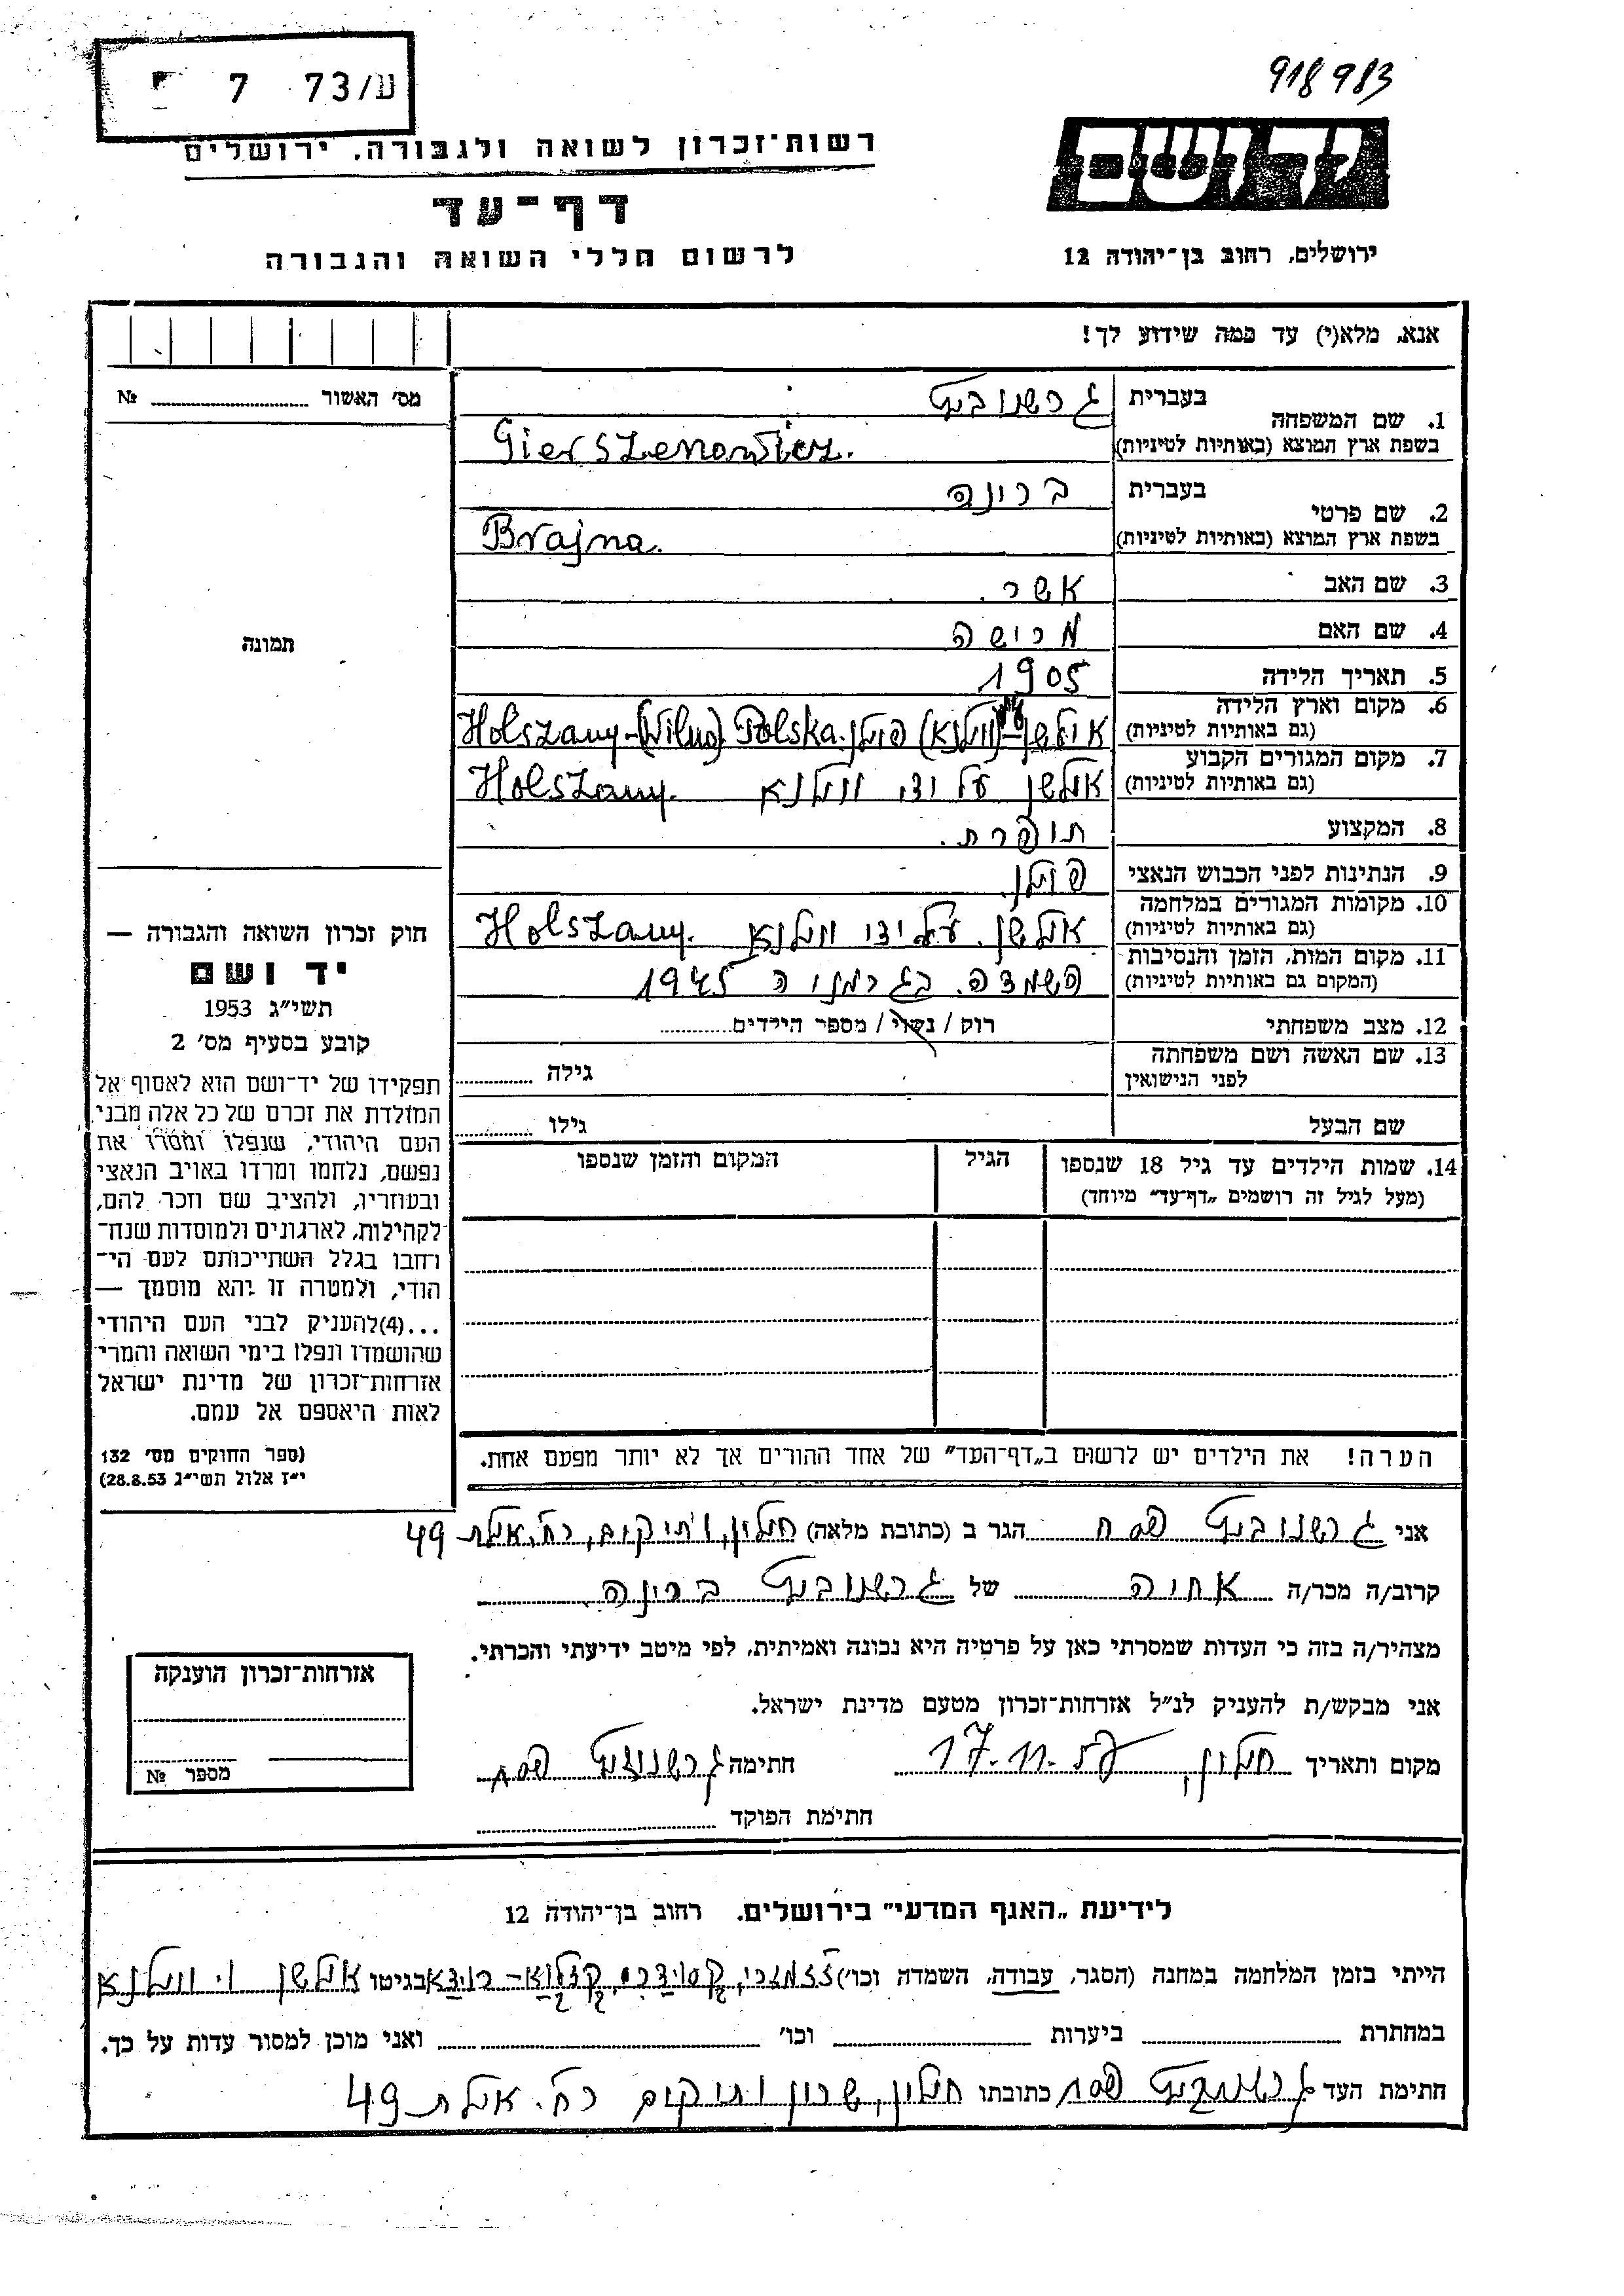 918983
ע/73 7
רשות־זכרון לשואה ולגבורה, ירושלים
יד ושם
דף־עד
לרשום חללי השואה והגבורה
ירושלים, רחוב בן־יהודה 12
אנא, מלא(י) עד כמה שידוע לך!
מס' האשור № 
1. שם המשפחה בעברית גרשנוביץ
בשפת ארץ המוצא (באותיות לטיניות) Gierszenowicz.
2. שם פרטי בעברית בריינה
בשפת ארץ המוצא (באותיות לטיניות) Brajna.
3. שם האב אשר.
4. שם האם
5. תאריך הלידה 1905
6. מקום וארץ הלידה (גם באותיות לטיניות) אולשן (ווילנא) פולין. Holszany-(Wilno) Polska
7. מקום המגורים הקבוע (גם באותיות לטיניות) אולשן על יד ווילנא Holszany.
8. המקצוע תופרת.
9. הנתינות לפני הכבוש הנאצי פולין.
10. מקומות המגורים במלחמה (גם באותיות לטיניות) אולשן. על יד ווילנא Holszany.
11. מקום המות, הזמן והנסיבות (המקום גם באותיות לטיניות) השמדה. בגרמניה 1945
12. מצב משפחתי רוק / נשוי / מספר הילדים
13. שם האשה ושם משפחתה לפני הנישואין גילה
שם הבעל גילו
14. שמות הילדים עד גיל 18 שנספו (מעל לגיל זה רושמים „דף־עד" מיוחד) הגיל המקום והזמן שנספו
תמונה
חוק זכרון השואה והגבורה —
יד ושם
תשי"ג 1953
קובע בסעיף מס' 2
תפקידו של יד־ושם הוא לאסוף אל
המולדת את זכרם של כל אלה מבני
העם היהודי, שנפלו ומסרו את
נפשם, נלחמו ומרדו באויב הנאצי
ובעוזריו, ולהציב שם וזכר להם,
לקהילות, לארגונים ולמוסדות שנח־
רחבו בגלל השתייכותם לעם הי־
הודי, ולמטרה זו יהא מוסמך —
...(4)להעניק לבני העם היהודי
שהושמדו ונפלו בימי השואה והמרי
אזרחות־זכרון של מדינת ישראל
לאות היאספם אל עמם.
(ספר החוקים מס' 132
י"ז אלול תשי"ג 28.8.53)
הערה! את הילדים יש לרשום ב„דף־העד" של אחד ההורים אך לא יותר מפעם אחת.
אני גרשנוביץ פסח הגר ב (כתובת מלאה) חולון, ותיקים, רח. אילת 49
קרוב/ה מכר/ה אחיה של גרשנוביץ בריינה
מצהיר/ה בזה כי העדות שמסרתי כאן על פרטיה היא נכונה ואמיתית, לפי מיטב ידיעתי והכרתי.
אני מבקש/ת להעניק לנ"ל אזרחות־זכרון מטעם מדינת ישראל.
מקום ותאריך חולון, 17.11.57 חתימה גרשנוביץ פסח
חתימת הפוקד
אזרחות־זכרון הוענקה
מספר №
לידיעת „האגף המדעי" בירושלים. רחוב בן־יהודה 12
הייתי בזמן המלחמה במחנה (הסגר, עבודה, השמדה וכו') בגיטו אולשן ו. ווילנא
במחתרת ביערות וכו' ואני מוכן למסור עדות על כך.
חתימת העד גרשנוביץ פסח כתובתו חולון, שכון ותיקים רח. אילת 49